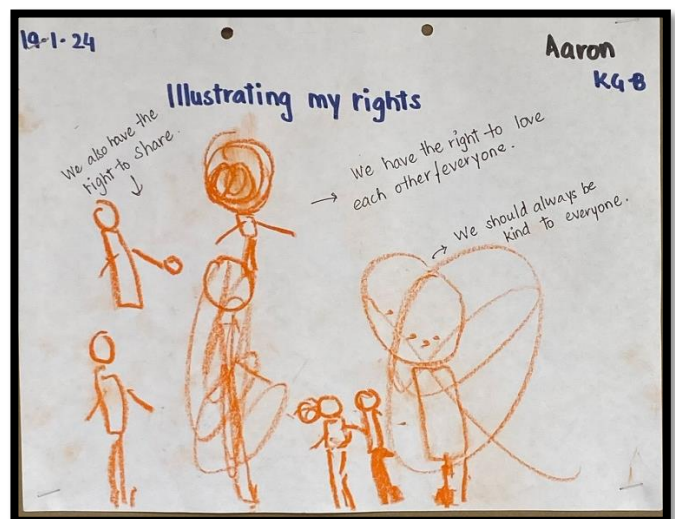 19-1-24
Aaron
KG-B
Illustrating my rights
We also have the
right to share.
We have the right to love
each other/everyone.
We should always be
kind to everyone.